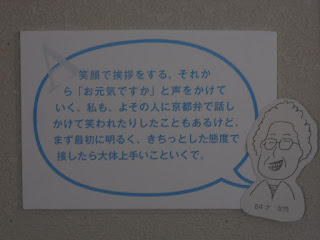 A
笑顔で挨拶をする、それか
ら「お元気ですか」と声をかけて
いく。私も、よその人に京都弁で話し
かけて笑われたりしたこともあるけど、
まず最初に明るく、きちっとした態度で
接したら大体上手いこといくで。
84才 女性